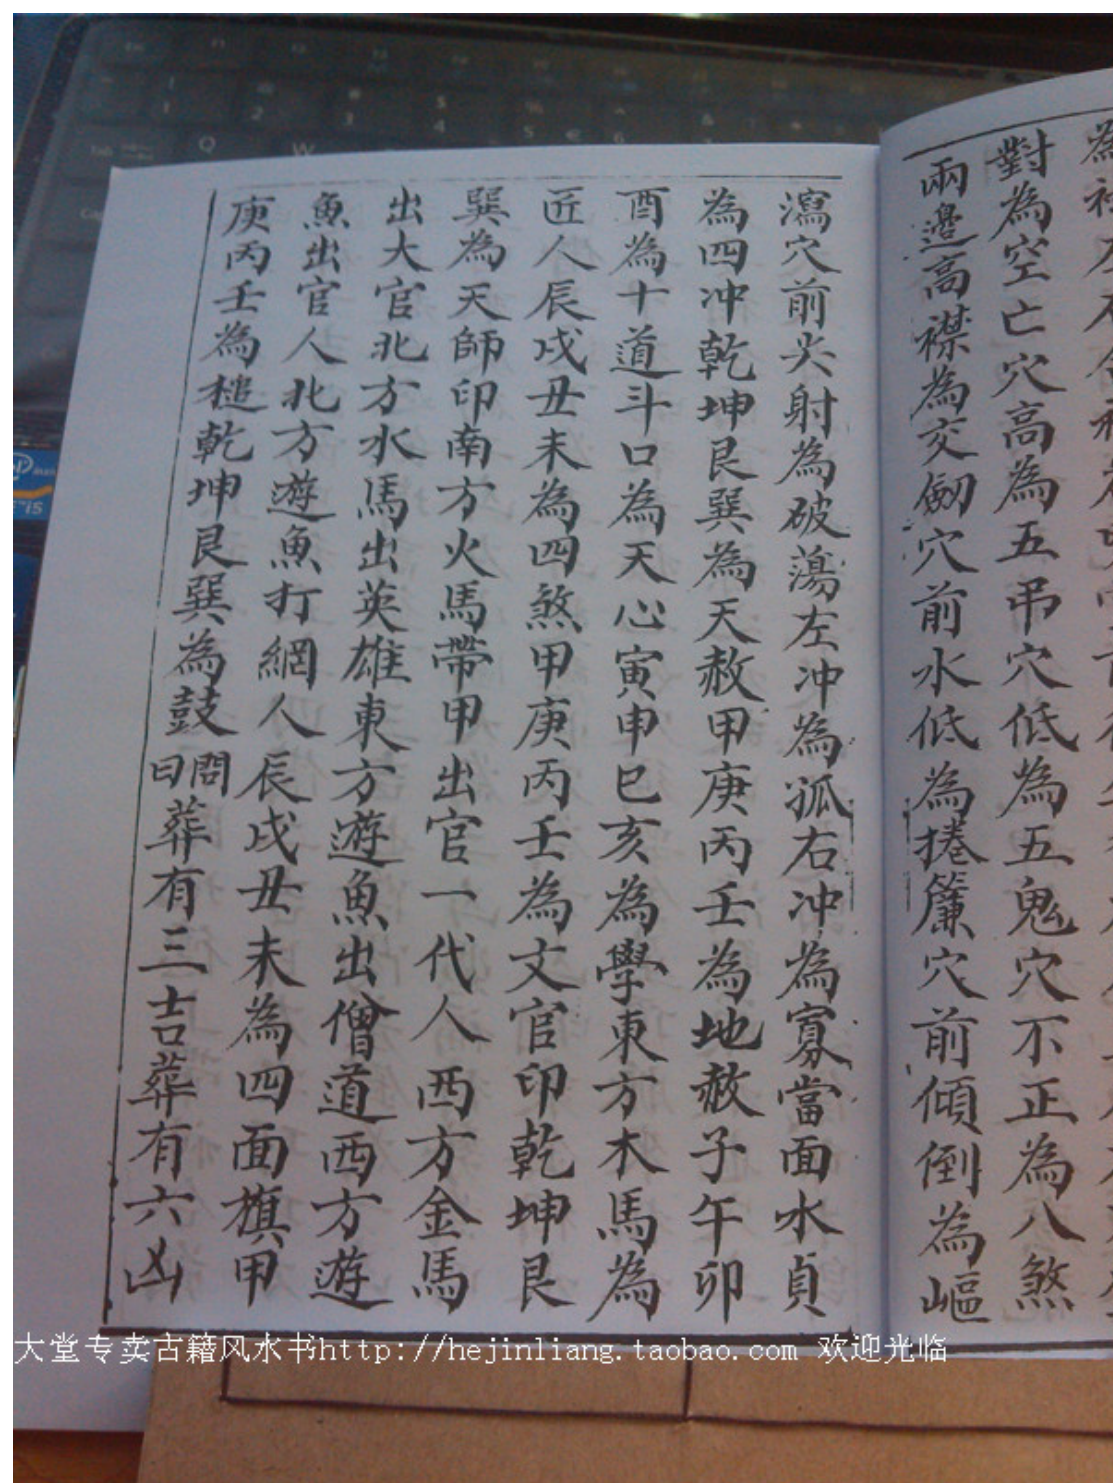 對為空亡穴高為五吊穴低為五鬼穴不正為八煞
兩邊高襟為交劒穴前水低為捲簾穴前傾倒為嶇
瀉穴前尖射為破蕩左冲為孤右冲為寡當面水貞
為四冲乾坤艮巽為天赦甲庚丙壬為地赦子午卯
酉為十道斗口為天心寅申巳亥為學東方木馬為
匠人辰戌丑未為四煞甲庚丙壬為文官印乾坤艮
巽為天師印南方火馬帶甲出官一代人西方金馬
出大官北方水馬出英雄東方遊魚出僧道西方遊
魚出官人北方遊魚打網人辰戌丑未為四面旗甲
庚丙壬為槌乾坤艮巽為鼓問曰葬有三吉葬有六凶
大堂专卖古籍风水书http://hejinliang.taobao.com 欢迎光临